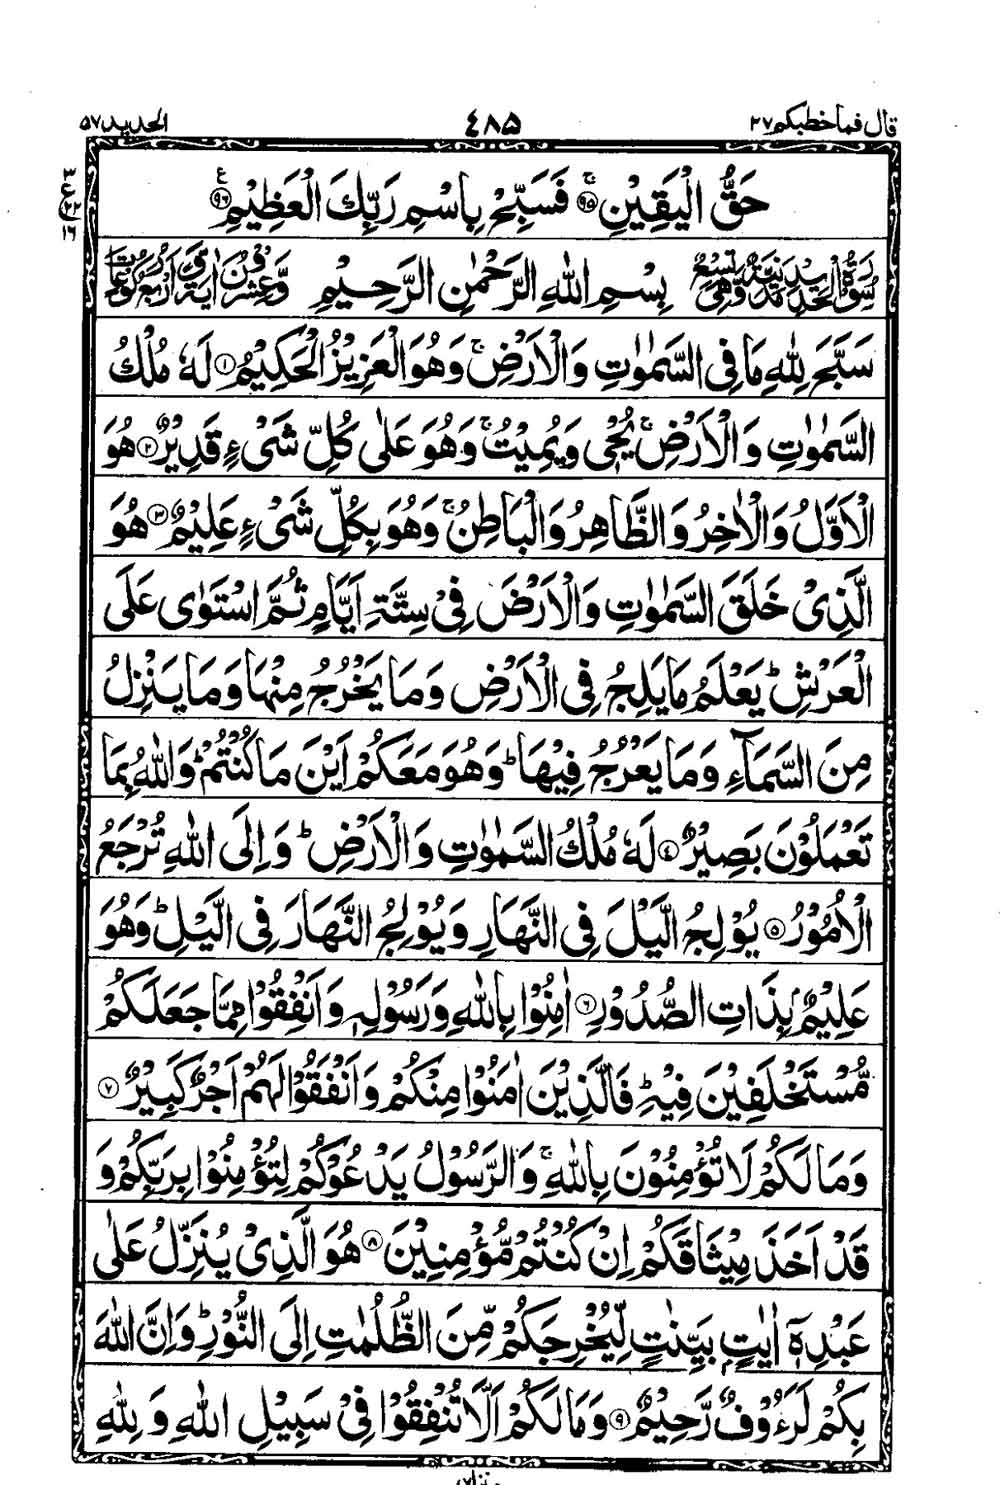 قال فما خطبکم ۲۷ ۴۸۵ الحدید ۵۷
حَقُّ الْيَقِيْنِ ۚ‏﴿۹۵﴾ فَسَبِّحْ بِاسْمِ رَبِّكَ الْعَظِيْمِ ﴿۹۶﴾ ع
۳
ع
۲۲
۱۶
سُوْرَةُ الْحَدِيْدِ مَدَنِيَّةٌ وَّهِيَ تِسْعٌ بِسْمِ اللّٰهِ الرَّحْمٰنِ الرَّحِيْمِ وَّعِشْرُوْنَ اٰيَةً وَّاَرْبَعُ رُكُوْعَاتٍ
سَبَّحَ لِلّٰهِ مَا فِي السَّمٰوٰتِ وَالْاَرْضِ ۚ وَهُوَ الْعَزِيْزُ الْحَكِيْمُ ﴿۱﴾ لَهٗ مُلْكُ
السَّمٰوٰتِ وَالْاَرْضِ ۚ يُحْيٖ وَيُمِيْتُ ۚ وَهُوَ عَلٰى كُلِّ شَيْءٍ قَدِيْرٌ ﴿۲﴾ هُوَ
الْاَوَّلُ وَالْاٰخِرُ وَالظَّاهِرُ وَالْبَاطِنُ ۚ وَهُوَ بِكُلِّ شَيْءٍ عَلِيْمٌ ﴿۳﴾ هُوَ
الَّذِيْ خَلَقَ السَّمٰوٰتِ وَالْاَرْضَ فِيْ سِتَّةِ اَيَّامٍ ثُمَّ اسْتَوٰى عَلَى
الْعَرْشِ ؕ يَعْلَمُ مَا يَلِجُ فِي الْاَرْضِ وَمَا يَخْرُجُ مِنْهَا وَمَا يَنْزِلُ
مِنَ السَّمَآءِ وَمَا يَعْرُجُ فِيْهَا ؕ وَهُوَ مَعَكُمْ اَيْنَ مَا كُنْتُمْ ؕ وَاللّٰهُ بِمَا
تَعْمَلُوْنَ بَصِيْرٌ ﴿۴﴾ لَهٗ مُلْكُ السَّمٰوٰتِ وَالْاَرْضِ ؕ وَاِلَى اللّٰهِ تُرْجَعُ
الْاُمُوْرُ ﴿۵﴾ يُوْلِجُ الَّيْلَ فِي النَّهَارِ وَيُوْلِجُ النَّهَارَ فِي الَّيْلِ ؕ وَهُوَ
عَلِيْمٌۢ بِذَاتِ الصُّدُوْرِ ﴿۶﴾ اٰمِنُوْا بِاللّٰهِ وَرَسُوْلِهٖ وَاَنْفِقُوْا مِمَّا جَعَلَكُمْ
مُّسْتَخْلَفِيْنَ فِيْهِ ؕ فَالَّذِيْنَ اٰمَنُوْا مِنْكُمْ وَاَنْفَقُوْا لَهُمْ اَجْرٌ كَبِيْرٌ ﴿۷﴾
وَمَا لَكُمْ لَا تُؤْمِنُوْنَ بِاللّٰهِ ۚ وَالرَّسُوْلُ يَدْعُوْكُمْ لِتُؤْمِنُوْا بِرَبِّكُمْ وَ
قَدْ اَخَذَ مِيْثَاقَكُمْ اِنْ كُنْتُمْ مُّؤْمِنِيْنَ ﴿۸﴾ هُوَ الَّذِيْ يُنَزِّلُ عَلٰى
عَبْدِهٖٓ اٰيٰتٍۢ بَيِّنٰتٍ لِّيُخْرِجَكُمْ مِّنَ الظُّلُمٰتِ اِلَى النُّوْرِ ؕ وَاِنَّ اللّٰهَ
بِكُمْ لَرَءُوْفٌ رَّحِيْمٌ ﴿۹﴾ وَمَا لَكُمْ اَلَّا تُنْفِقُوْا فِيْ سَبِيْلِ اللّٰهِ وَلِلّٰهِ